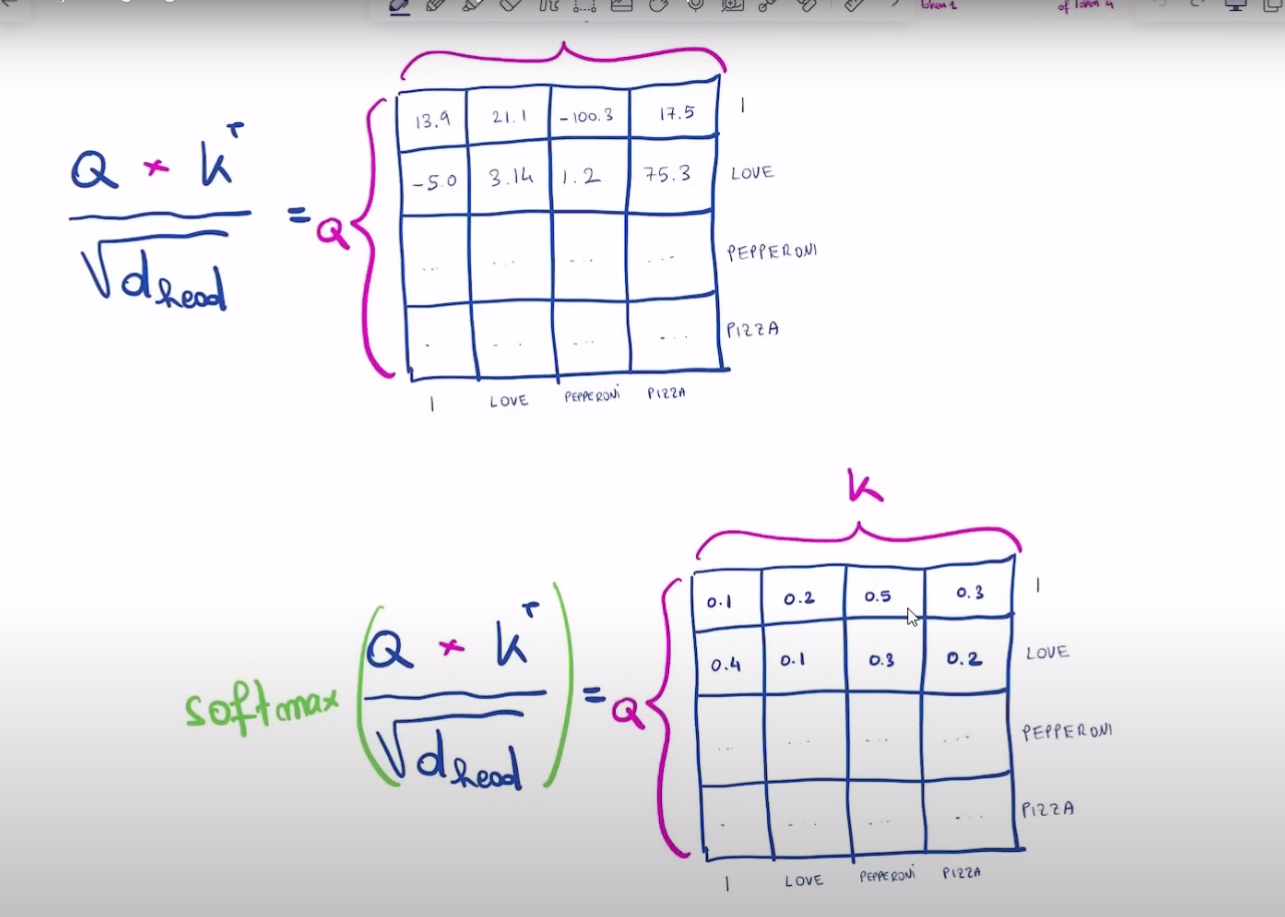 token 1
of token 4
Q * K^T
√d_head
=
Q
13.9 21.1 -100.3 17.5 I
-5.0 3.14 1.2 75.3 LOVE
... ... ... ... PEPPERONI
. ... ... ... PIZZA
I LOVE PEPPERONi PIZZA
K
softmax
Q * K^T
√d_head
=
Q
0.1 0.2 0.5 0.3 I
0.4 0.1 0.3 0.2 LOVE
... ... ... ... PEPPERONI
. ... ... ... PIZZA
I LOVE PEPPERONi PIZZA